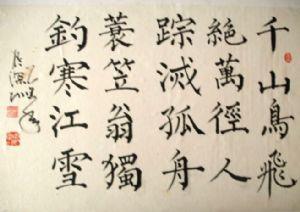 千山鳥飛
絕萬徑人
踪滅孤舟
蓑笠翁獨
釣寒江雪